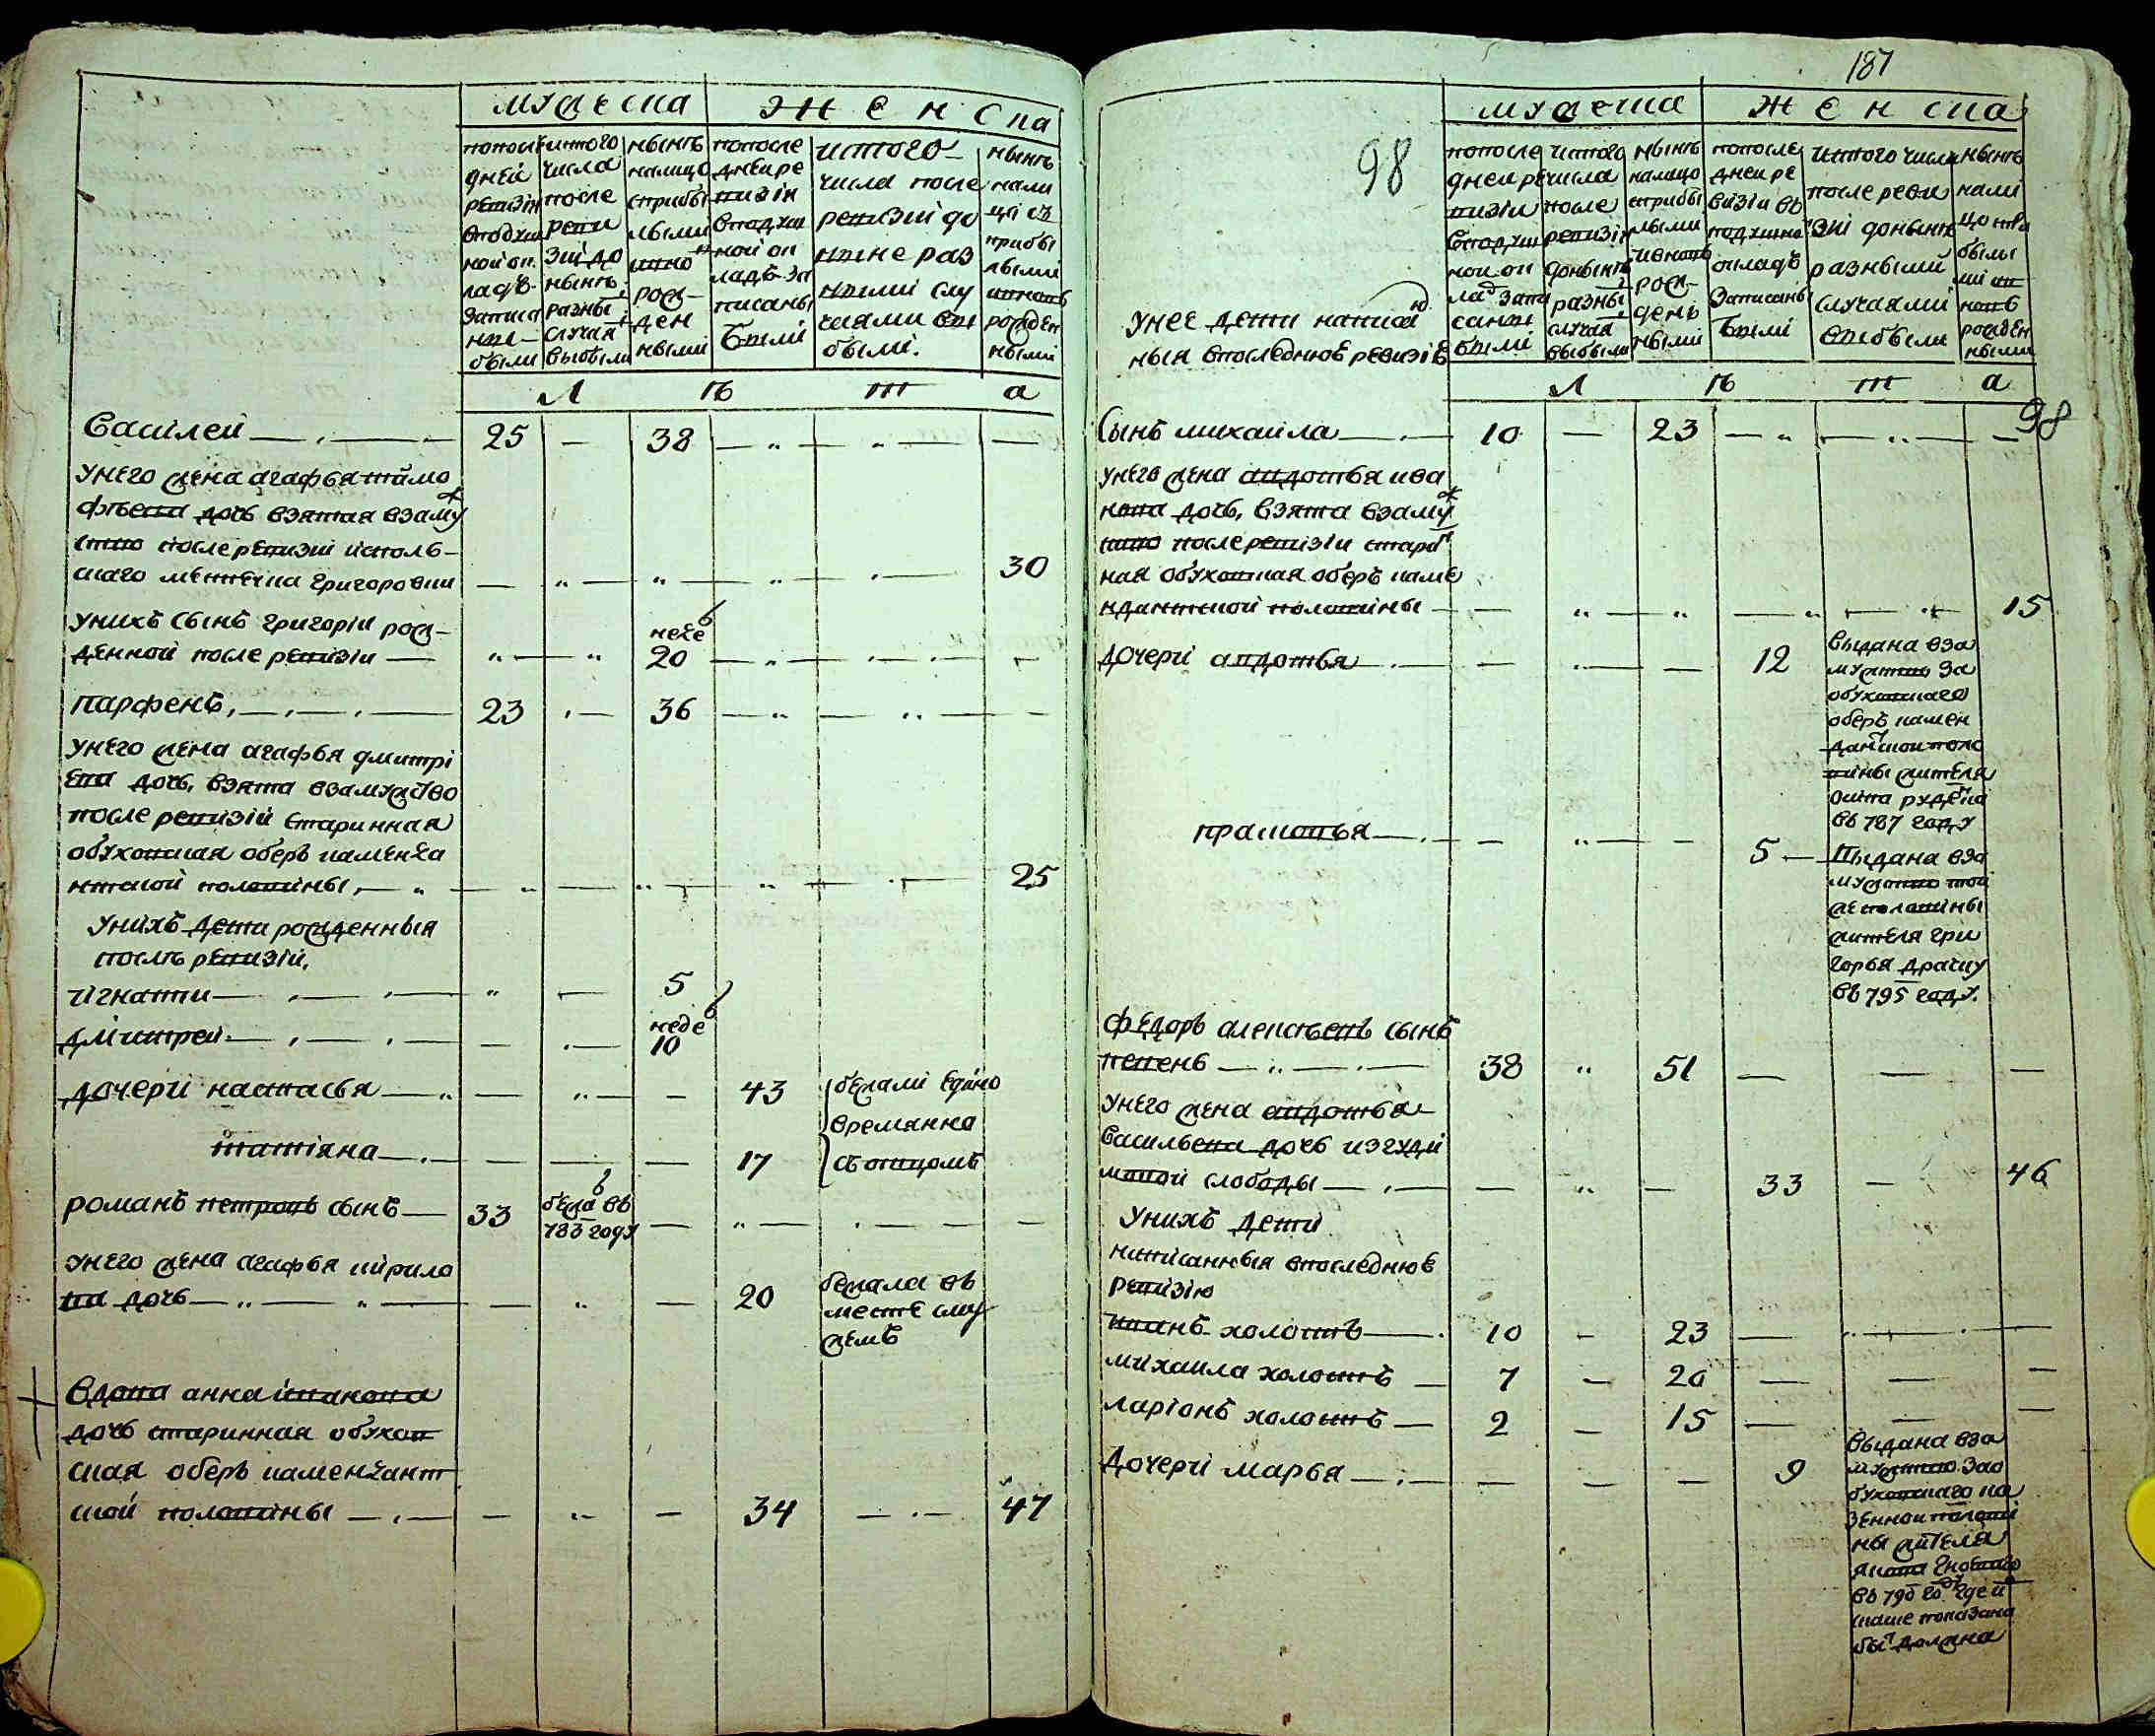 мужеска
женска
попослѣ
дней
ревизіи
вподуш
ной ок
ладѣ
записа
ны
были
истого
числа
после
реви
зіи до
нынѣ
разны
случая
выбыли
нынѣ
налицо
сприбы
лыми
вново
рож-
ден
ными
попосле
дней ре
визіи
вподуш
ной ок
ладѣ за
писаны
были
истого
числа после
ревизіи до
ныне раз
ными слу
чаями вы
были.
нынѣ
нали
цо съ
прибы
лыми
ивновь
рожден
ными
л ѣ т а
Василей 25 — 38
унего жена агафья тимо
фѣева дочь взятая взаму
ство после ревизіи исполь-
скаго местечка григоровки 30
унихъ сынъ григорій рож-
денной после ревизіи неде 20
парфенъ 23 — 36
унего жена агафья дмитрі
ева дочь, взята взамужство
после ревизіи старинная
обуховская оберъ каменда
нтской половины 25
унихъ дети рожденныя
послѣ ревизіи.
игнатий 5
дмитрей неде 10
дочери настасья 43 бежали едино
временно
татіяна 17 сотцомъ
романъ петровъ сынъ 33 бежа въ
783 году
унего жена агафья кирило
ва дочь 20 бежала въ
месте сму
жемъ
Вдова анна іванова
дочь старинная обухов
ская оберъ камендант
ской половины 34 47
187
98
мужеска
женска
попосле
дней ре
визіи
вподуш
ной ок
лад запи
саны
были
истого
числа
после
ревизіи
донынѣ
разны
случая
выбыли
нынѣ
налицо
сприбы
лыми
ивновь
рож-
день
ными
попослѣ
дней ре
визіи въ
подушно
окладѣ
записаны
были
истого числа
после реви
зіи донынѣ
разными
случаями
выбыли
нынѣ
нали
цо при
былы
ми ив
новь
рожден
ными
унее дети написан
ныя впоследнюе ревизію
л ѣ т а
98
Сынъ михаила 10 — 23
унего жена авдотья ива
нова дочь, взята взаму
ство после ревизіи стари
ная обуховская оберъ каме
ндантской половины 15
дочери авдотья 12 выдана вза
мужство за
обуховскаго
оберъ камен
данской поло
вины жителя
въ 787 году
5 — Выдана вза
мужство той
же половины
жителя гри
горья драчку
въ 795 году.
федоръ алексѣевъ сынъ
38 51
унего жена авдотья
васильева дочь изгуди
мовой слободы 33 46
Унихъ дети
написанныя впоследнюе
ревизію
иванъ холостъ 10 — 23
михаила холостъ 7 — 20
ларіонъ холостъ 2 — 15
Дочери марья 9 Выдана вза
мужство зао
буховскаго ка
зенной полови
ны жителя
въ 790 году где и
ниже показана
быт должна